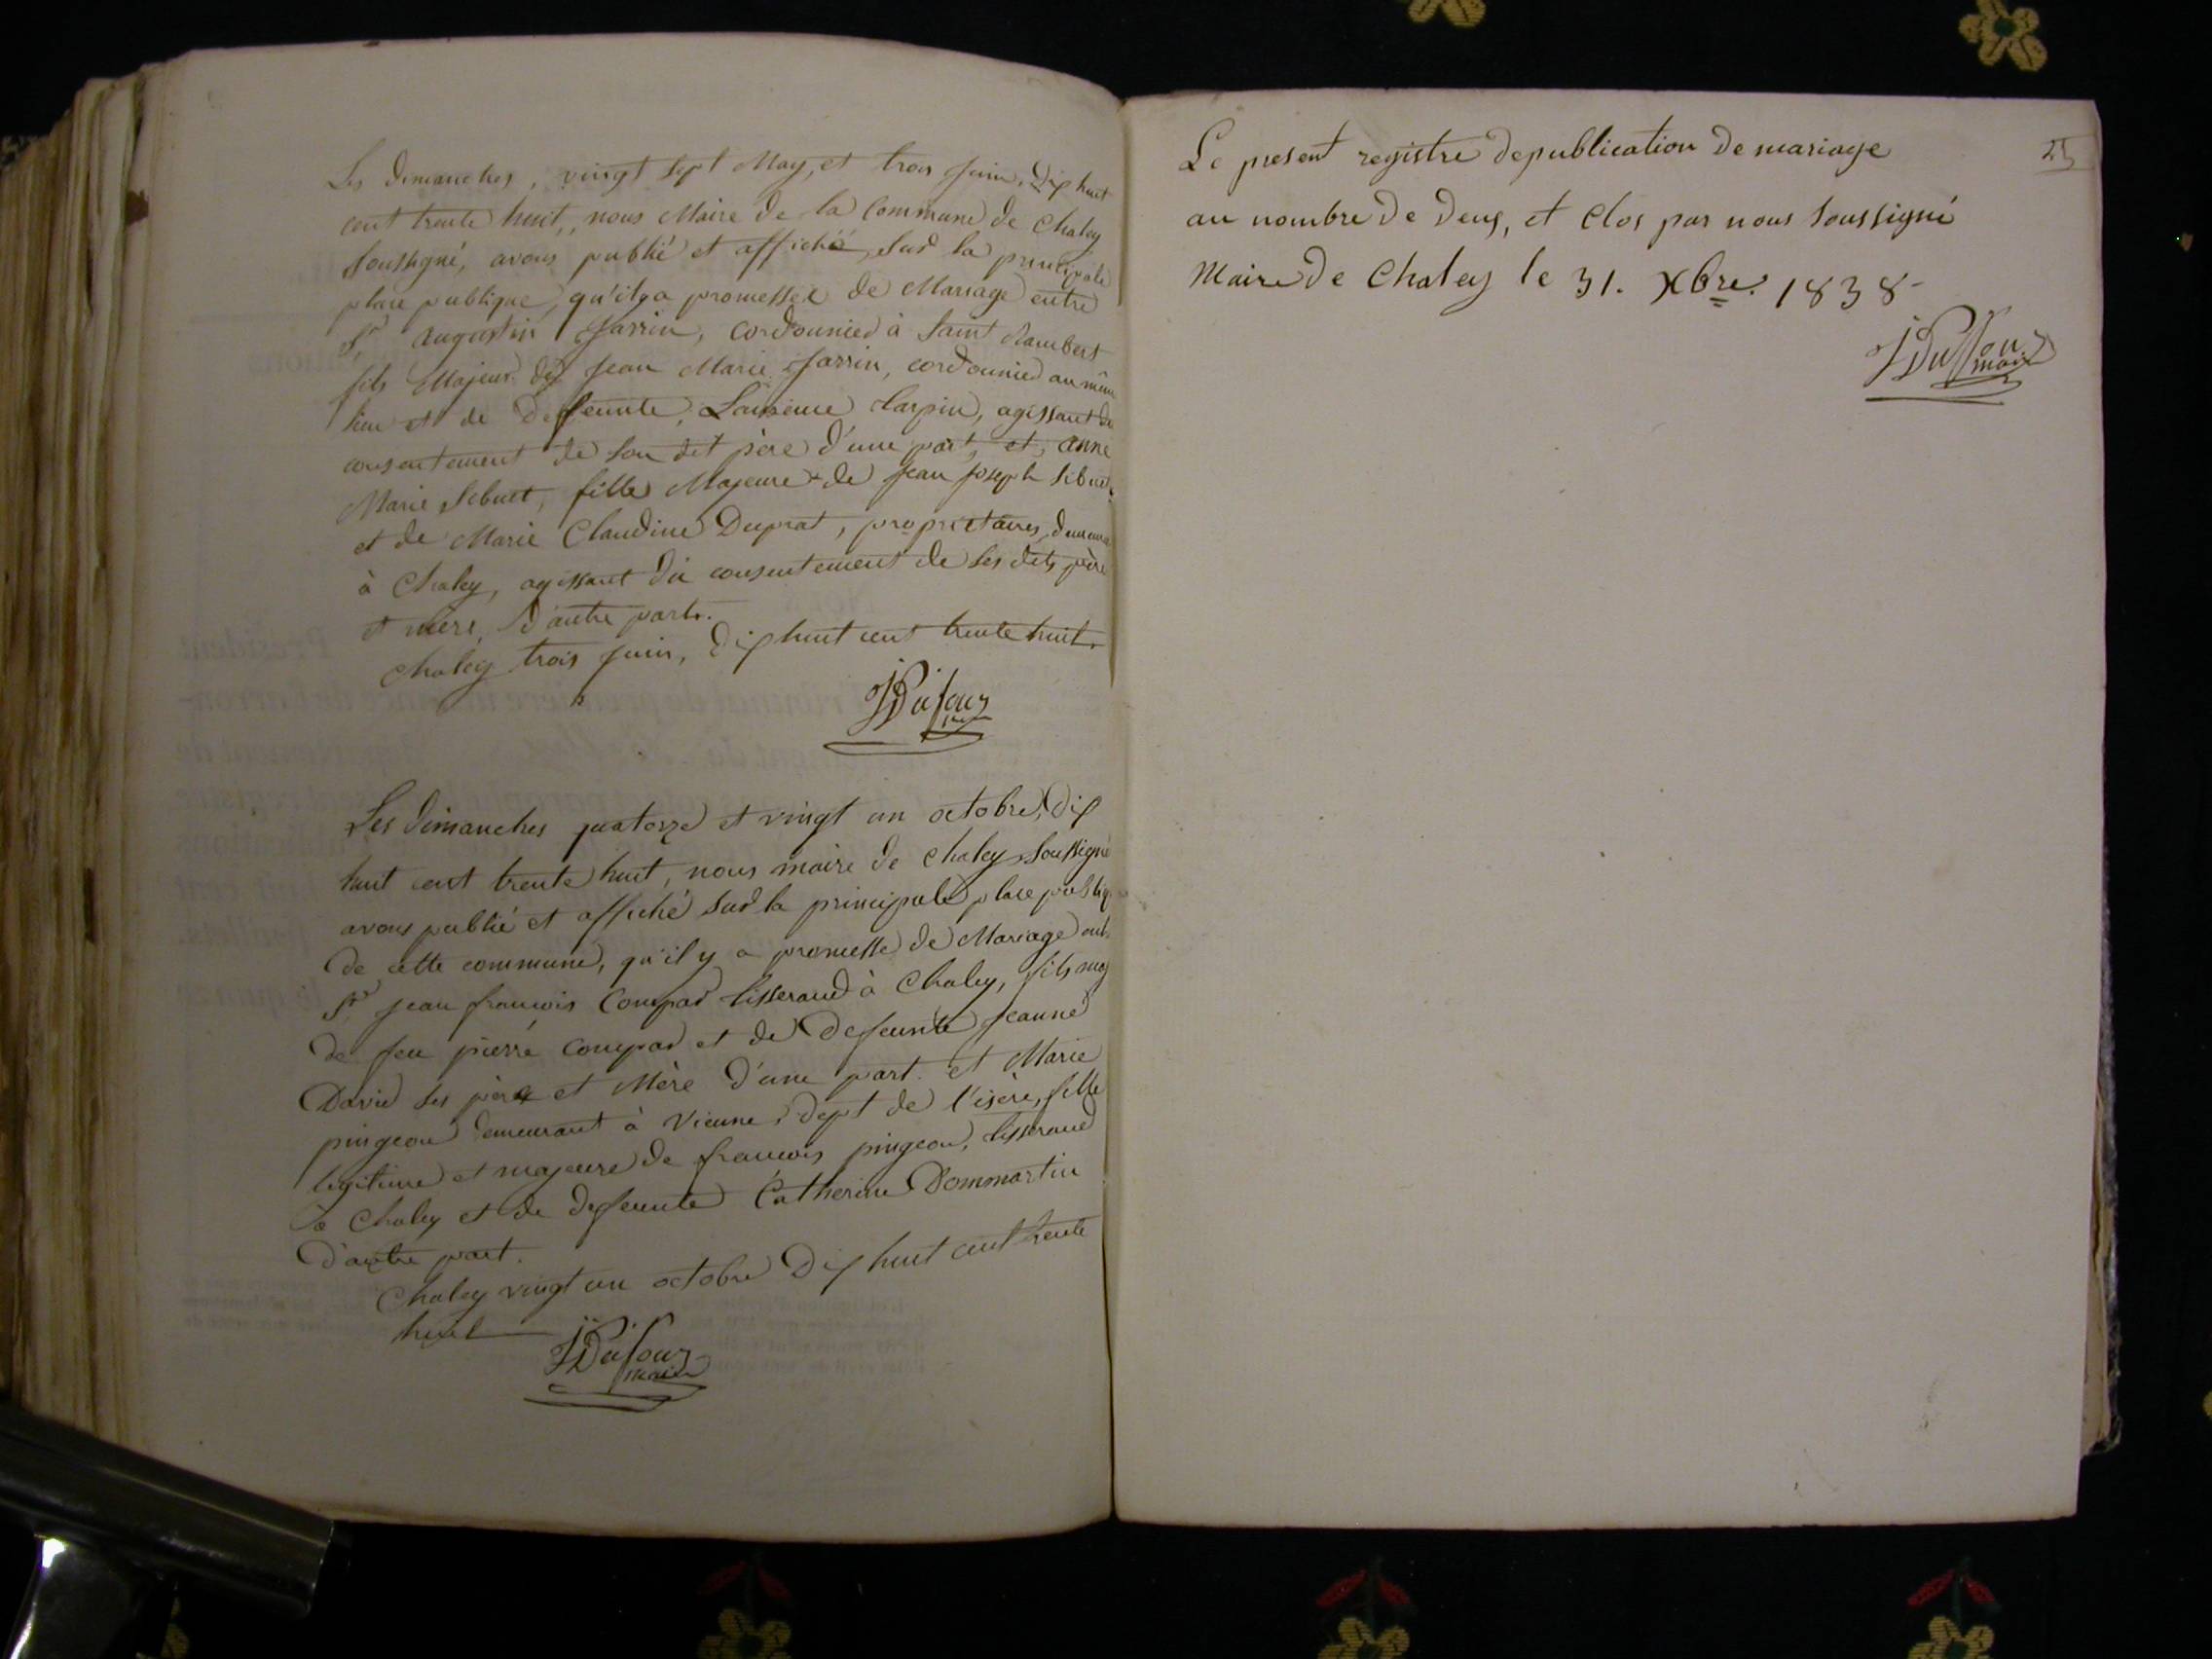 Les dimanches, vingt sept May, et trois juin, dix huit
cent trente huit, nous Maire de la Commune de Chaley
soussigné, avons publié et affiché, sur la principale
place publique, qu'il y a promesse de Mariage entre
Sr Augustin Jarrin, cordonnier à Saint Rambert
fils Majeur de Jean Marie Jarrin, cordonnier au même
lieu et de deffeunte Larpin, agissant du
consentement de son dit père d'une part, et, anne
Marie Sibuet, fille Majeure de Jean Joseph Sibuet
et de Marie Claudine Duprat, propriétaires,
à Chaley, agissant du consentement de ses dits père
et mère, d'autre part.
Chaley trois juin, dix huit cent trente huit.
JDufour
Les dimanches quatorze et vingt un octobre, dix
huit cent trente huit, nous maire de Chaley, soussigné
avons publié et affiché sur la principale place publiq
de cette commune, qu'il y a promesse de Mariage entr
Sr jean françois Compar tisserand à Chaley, fils maj
de feu pierre Compar et de defeunte Jeanne
David ses père et Mère d'une part. et Marie
pingeon demeurant à Vienne, dept de l'isère, fille
légitime et majeure de françois pingeon, tisserand
à Chaley et de defeunte Catherine Dommartin
d'autre part.
Chaley vingt un octobre dix huit cent trente
huit
JDufour
maire
25
Le present registre de publication de mariage
au nombre de deux, et clos par nous soussigné
Maire de Chaley le 31. Xbre. 1838
JDuffour
maire